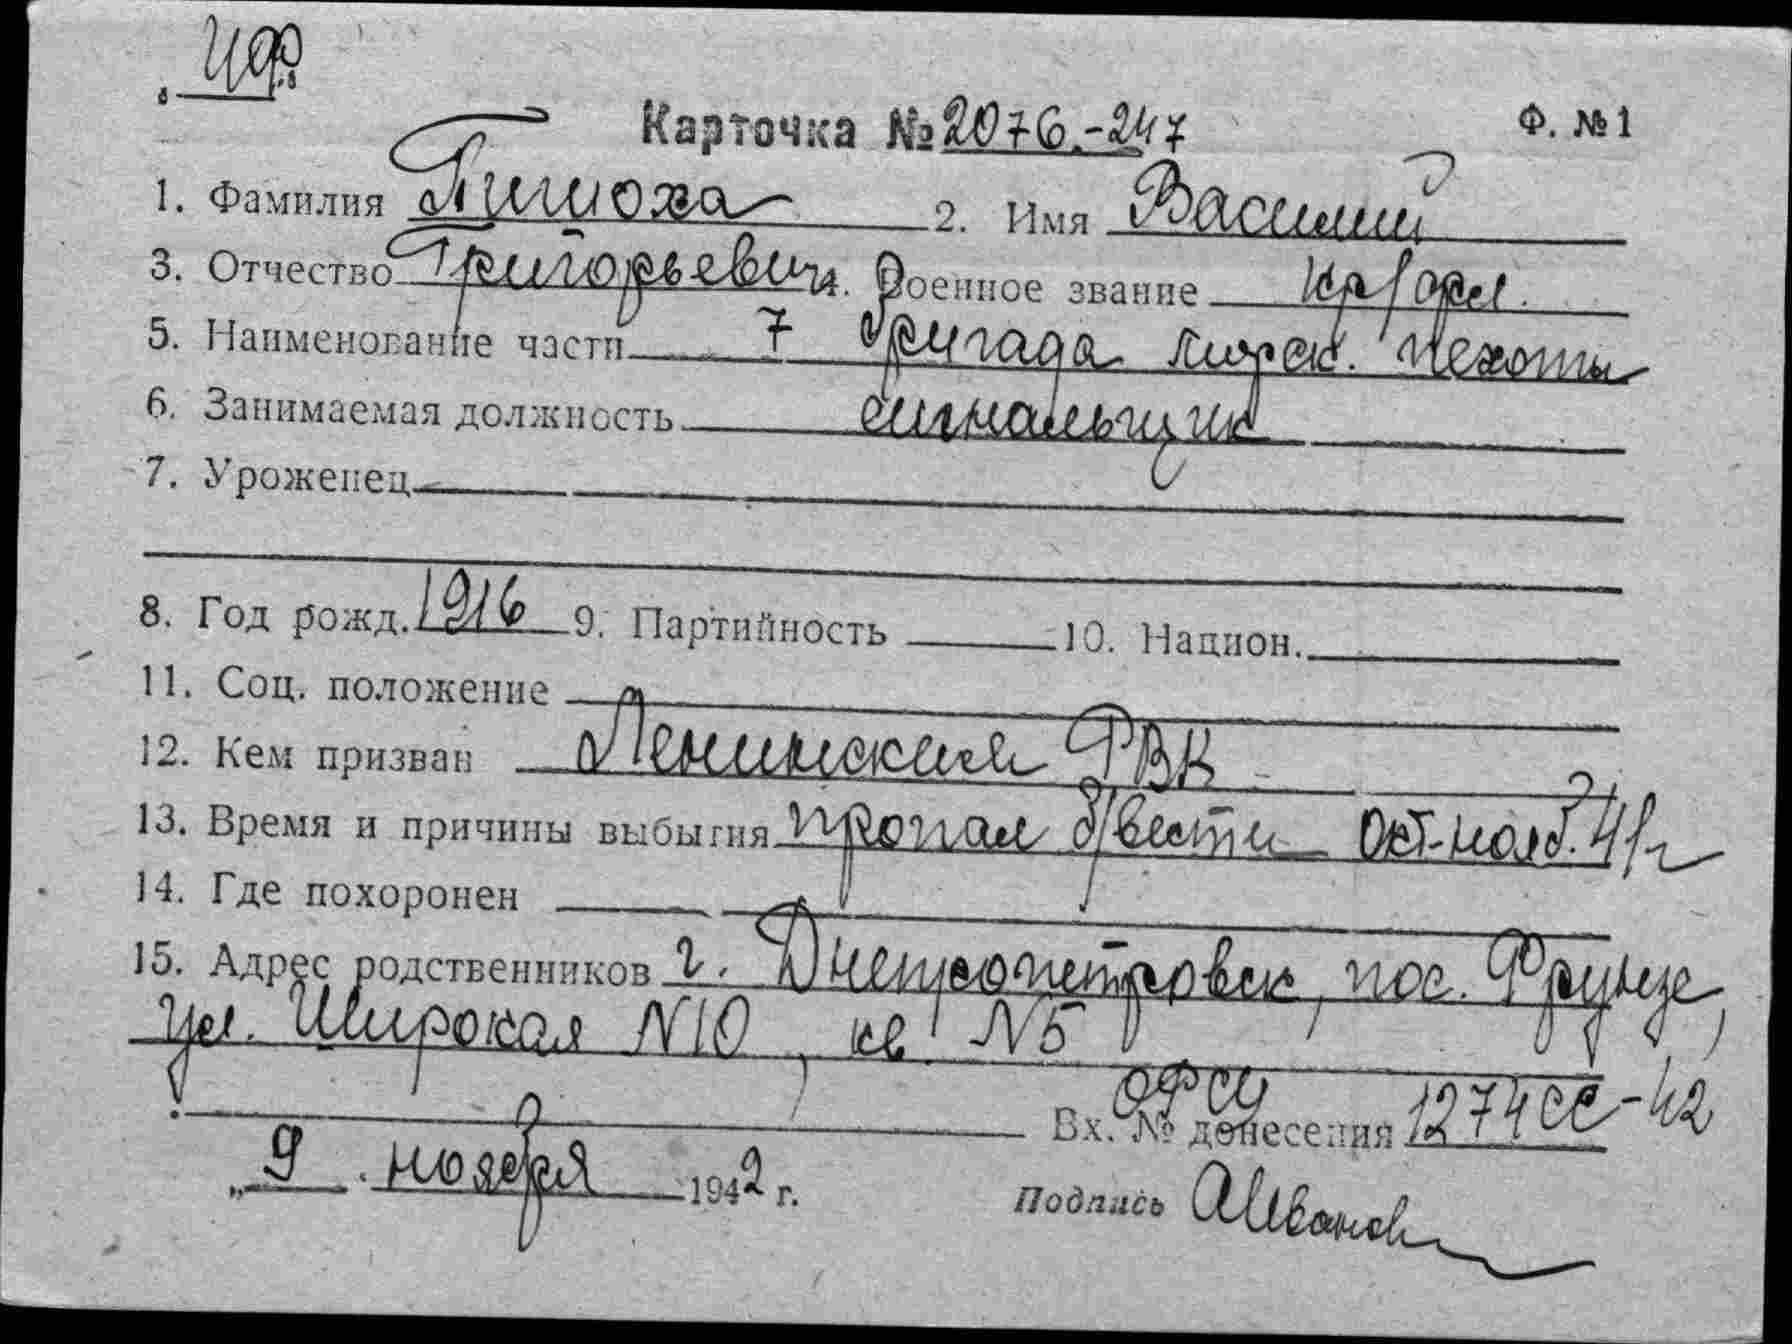 Карточка № 2076.-247 Ф. №1
1. Фамилия Тимоха 2. Имя Василий
3. Отчество Григорьевич 4. Военное звание кр/фл.
5. Наименование части 7 бригада морск. пехоты
6. Занимаемая должность сигнальщик
7. Уроженец
8. Год рожд. 1916 9. Партийность 10. Национ.
11. Соц. положение
12. Кем призван Ленинским РВК
13. Время и причины выбытия пропал б/вести окт-нояб. 41г
14. Где похоронен
15. Адрес родственников г. Днепропетровск, пос. Фрунзе,
ул. Широкая N10, кв. N5
Вх. № донесения 1274сс-42
„9 ноября 1942 г. Подпись АИванов